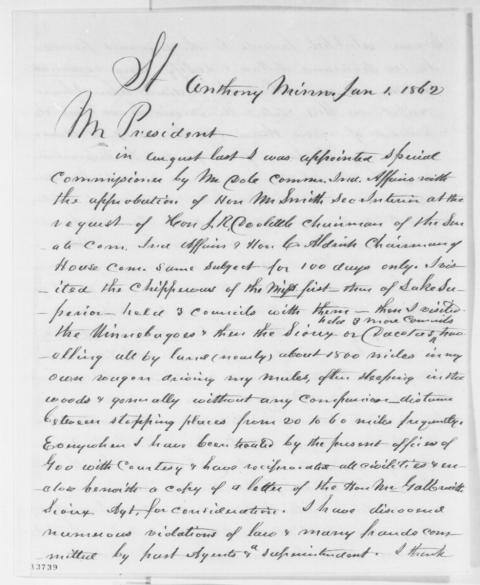 St Anthony Minn. Jan 1. 1862
Mr President
in August last I was appointed special
Commissioner by Mr Dole Commr. Ind. Affairs with
the approbation of Hon Mr Smith Sec Interior at the
request of Hon J. R. Doolittle Chairman of the Sen
ate Com. Ind Affairs & Hon C Aldrich Chairman of
House Com. same subject for 100 days only. I vis
ited the Chippewas of the Miss first then of Lake Su
perior - held 3 councils with them - then I visited
held 3 more Councils
the Winnebagoes & then the Sioux or Dacotas, trav
elling all by land (nearly) about 1800 miles in my
own wagon driving my mules, often sleeping in the
woods & generally without any companion - distance
between stopping places from 20 to 60 miles frequently.
Everywhere I have been treated by the present officers of
Gov with courtesy & have reciprocated all civilities & en
close herewith a copy of a letter of the Hon Mr Galbraith
Sioux Agt, for consideration. I have discovered
numerous violations of law & many frauds com
mitted by past Agents & a superintendent. I think
13739